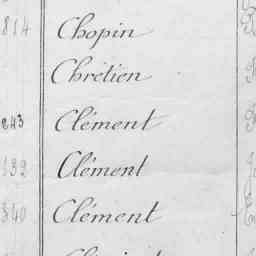 814 Chopin
Chrétien
843 Clément
832 Clément
840 Clément